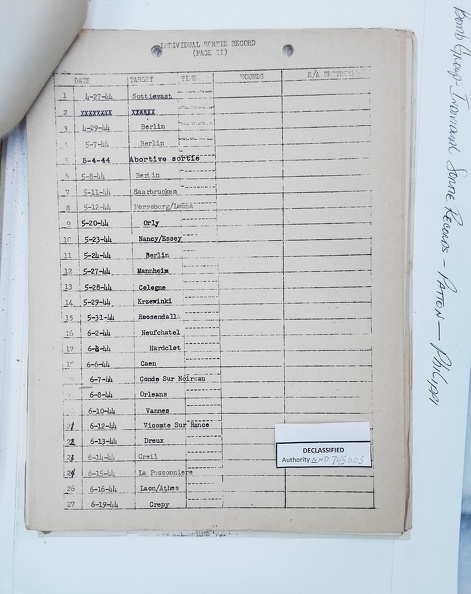 INDIVIDUAL SORTIE RECORD
(PAGE II)
DATE TARGET TIME WOUNDS E/A DESTROYED
1 4-27-44 Sottievast
2 XXXXXXXX XXXXXX
3 4-29-44 Berlin
4 5-7-44 Berlin
5 5-4-44 Abortive sortie
6 5-8-44 Berlin
7 5-11-44 Saarbrucken
8 5-12-44 Merseburg/Leuna
9 5-20-44 Orly
10 5-23-44 Nancy/Essey
11 5-24-44 Berlin
12 5-27-44 Mannheim
13 5-28-44 Cologne
14 5-29-44 Krzewinki
15 5-31-44 Roosendall
16 6-2-44 Neufchatel
17 Hardelot
6-6-44 Caen
6-7-44 Conde Sur Noireau
6-8-44 Orleans
6-10-44 Vannes
21 6-12-44 Vicomte Sur Rance
22 6-13-44 Dreux
6-14-44 Creil
6-15-44 La Possonniere
26 6-16-44 Laon/Athes
27 6-19-44 Crepy
DECLASSIFIED
Authority NND 745005
Bomb Group - Individual Sortie Records - Patton - Philippy